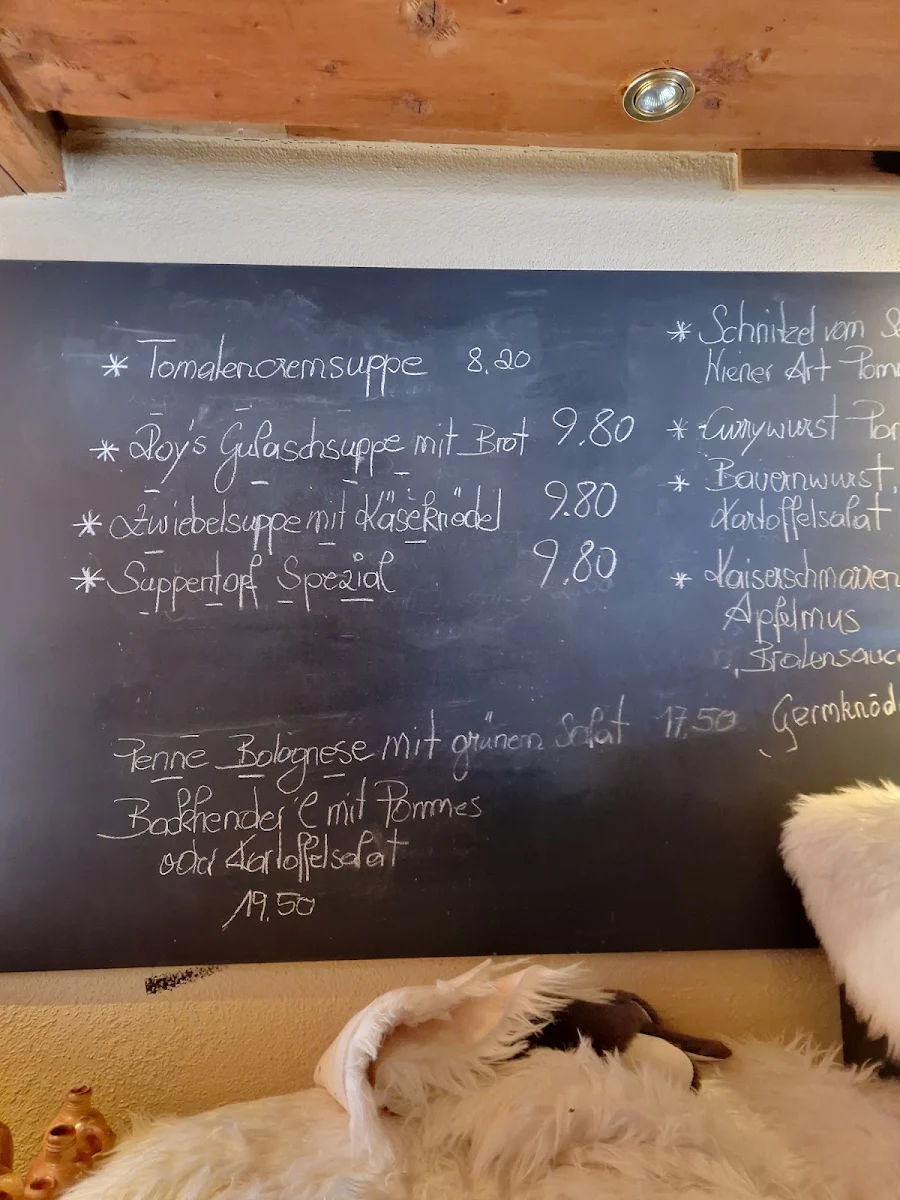 * Tomatencremsuppe 8.20
* Roy's Gulaschsuppe mit Brot 9.80
* Zwiebelsuppe mit Käseknödel 9.80
* Suppentopf Spezial 9.80
Penne Bolognese mit grünem Salat 17,50
Backhender'l mit Pommes
oder Kartoffelsalat
19.50
* Schnitzel vom
Wiener Art Pom
* Currywurst Po
* Bauernwurst,
Kartoffelsalat
* Kaiserschmarren
Apfelmus
Bratensauc
Germknöd